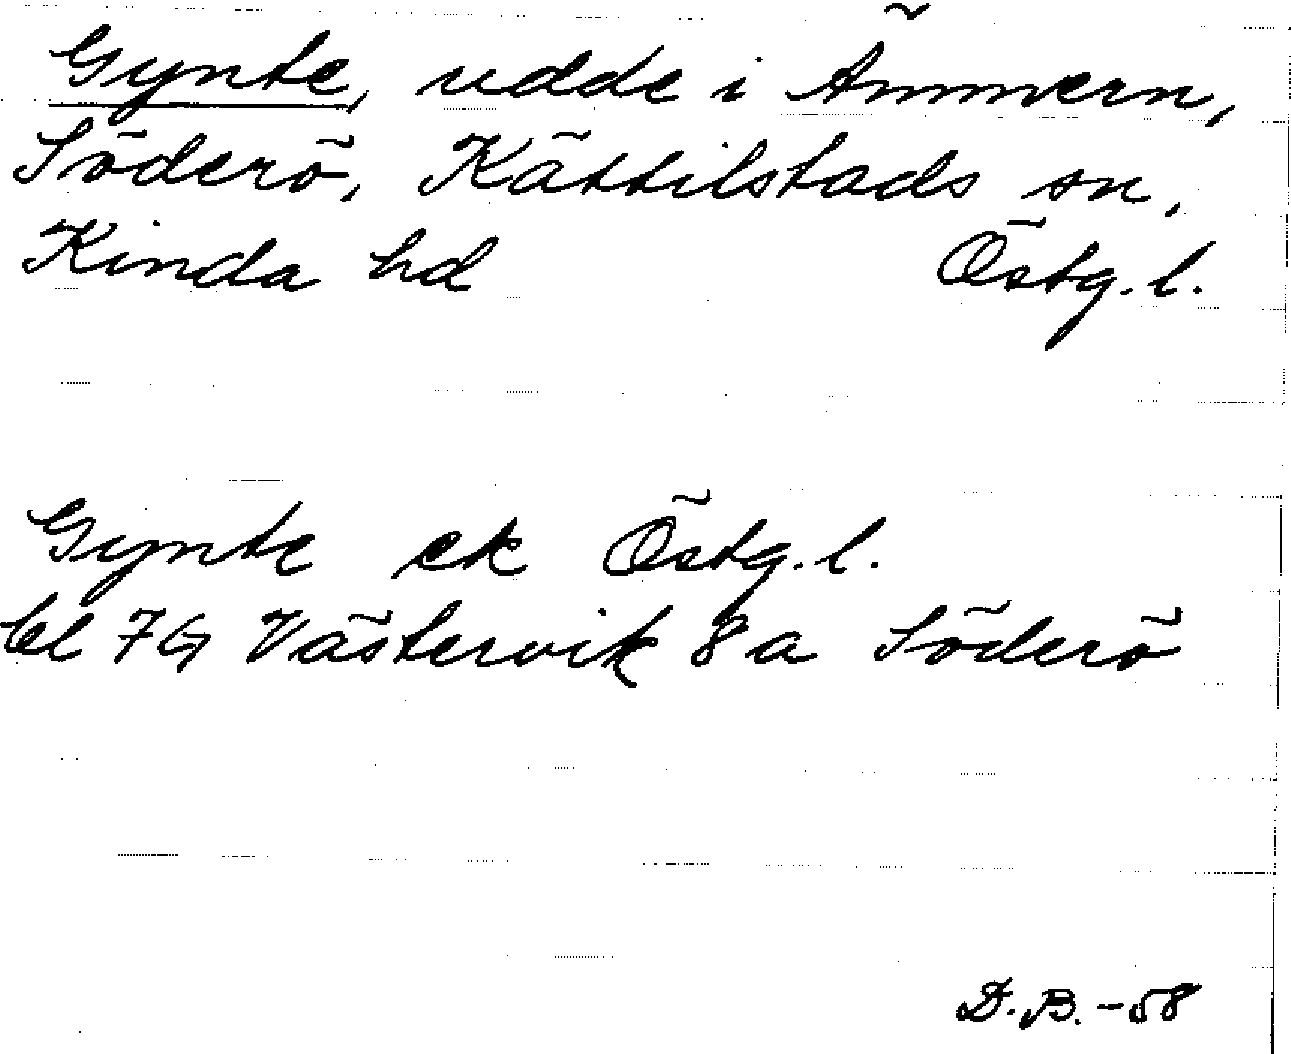 Gynte, udde i Ämmern,
Söderö, Kättilstads sn,
Kinda hd Östg. l.
Gynte ek Östg. l.
bl 7G Västervik 8a Söderö
D.B. -58